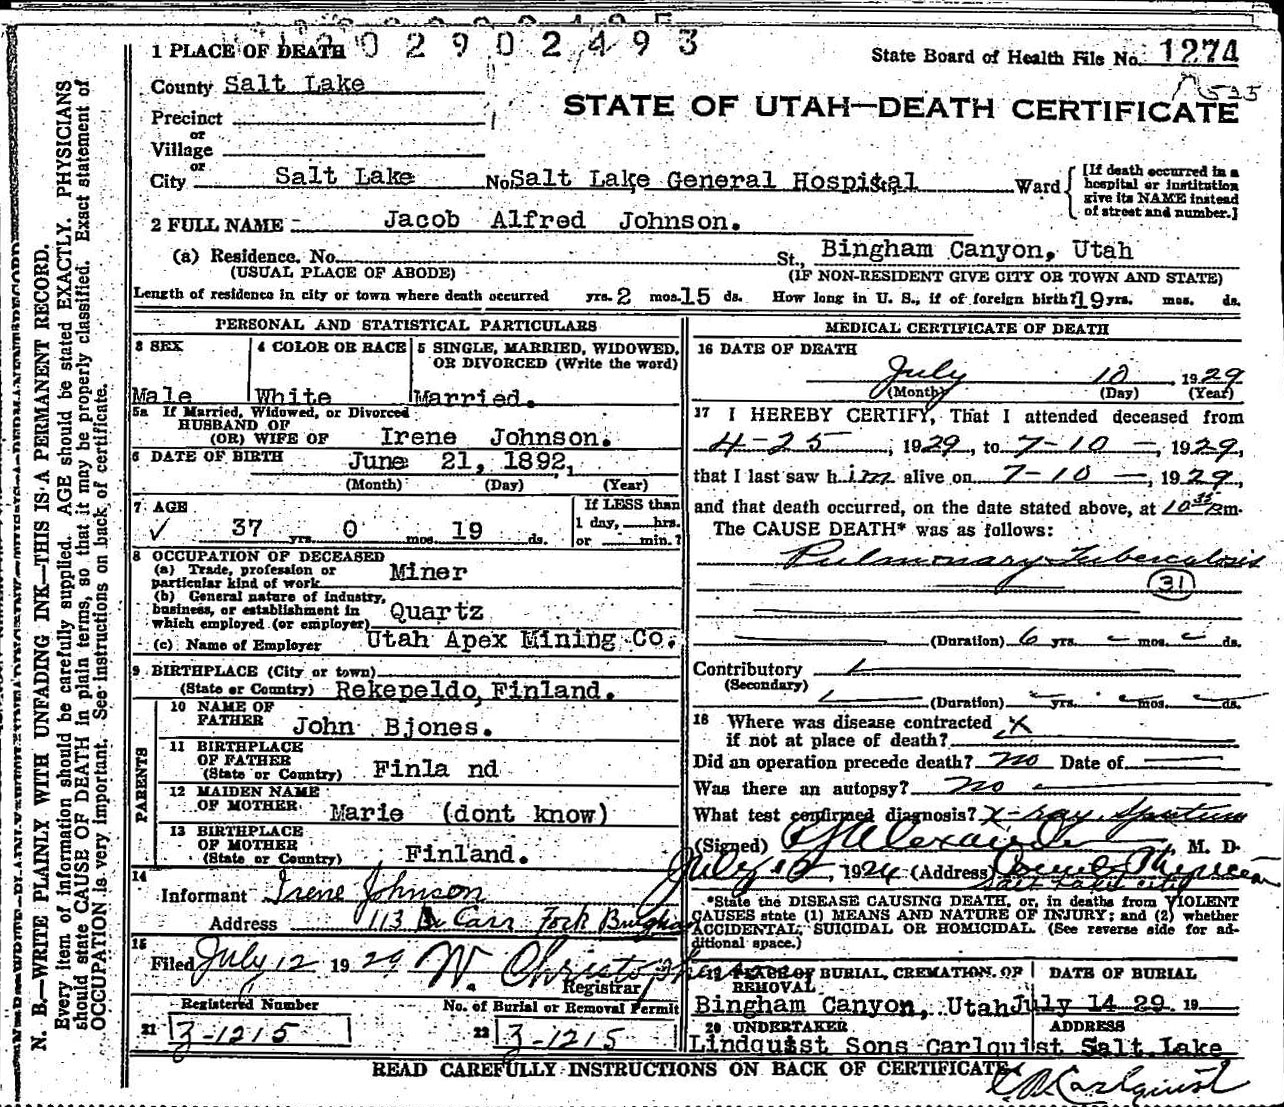 1 PLACE OF DEATH 0 2 9 0 2 4 9 3
State Board of Health File No. 1274
535
County Salt Lake
STATE OF UTAH—DEATH CERTIFICATE
Precinct
or
Village
or
City Salt Lake No. Salt Lake General Hospital Ward
[If death occurred in a
hospital or institution
give its NAME instead
of street and number.]
2 FULL NAME Jacob Alfred Johnson.
(a) Residence. No. St., Bingham Canyon, Utah
(USUAL PLACE OF ABODE) (IF NON-RESIDENT GIVE CITY OR TOWN AND STATE)
Length of residence in city or town where death occurred yrs. 2 mos. 15 ds. How long in U. S., if of foreign birth? 19 yrs. mos. ds.
PERSONAL AND STATISTICAL PARTICULARS
3 SEX 4 COLOR OR RACE 5 SINGLE, MARRIED, WIDOWED,
OR DIVORCED (Write the word)
Male White Married.
5a If Married, Widowed, or Divorced
HUSBAND OF
(OR) WIFE OF Irene Johnson.
6 DATE OF BIRTH June 21, 1892,
(Month) (Day) (Year)
7 AGE If LESS than
✓ 37 yrs. 0 mos. 19 ds. 1 day, hrs.
or min.?
8 OCCUPATION OF DECEASED
(a) Trade, profession or
particular kind of work Miner
(b) General nature of industry,
business, or establishment in
which employed (or employer) Quartz
(c) Name of Employer Utah Apex Mining Co.
9 BIRTHPLACE (City or town)
(State or Country) Rekepeldo, Finland.
PARENTS
10 NAME OF
FATHER John Bjones.
11 BIRTHPLACE
OF FATHER
(State or Country) Finla nd
12 MAIDEN NAME
OF MOTHER Marie (dont know)
13 BIRTHPLACE
OF MOTHER
(State or Country) Finland.
14
Informant Irene Johnson
Address 113 Carr Fork Bingham
15
Filed July 12 1929 W. Christopherson
Registrar
Registered Number No. of Burial or Removal Permit
21 3-1215 22 3-1215
MEDICAL CERTIFICATE OF DEATH
16 DATE OF DEATH
July 10, 1929
(Month) (Day) (Year)
17 I HEREBY CERTIFY, That I attended deceased from
4-25, 1929, to 7-10 —, 1929,
that I last saw him alive on 7-10 —, 1929,
and that death occurred, on the date stated above, at 10 35 m.
The CAUSE DEATH* was as follows:
Pulmonary Tuberculosis
31
(Duration) 6 yrs. – mos. – ds.
Contributory
(Secondary)
(Duration) yrs. mos. ds.
18 Where was disease contracted X
if not at place of death?
Did an operation precede death? no Date of
Was there an autopsy? no
What test confirmed diagnosis? X-ray, Sputum
(Signed) Alexander, M. D.
July 12, 192 (Address)
Salt Lake City
*State the DISEASE CAUSING DEATH, or, in deaths from VIOLENT
CAUSES state (1) MEANS AND NATURE OF INJURY; and (2) whether
ACCIDENTAL, SUICIDAL OR HOMICIDAL. (See reverse side for ad-
ditional space.)
19 PLACE OF BURIAL, CREMATION, OR
REMOVAL
DATE OF BURIAL
Bingham Canyon, Utah July 14 29. 19
20 UNDERTAKER ADDRESS
Lindquist Sons Carlquist Salt Lake
READ CAREFULLY INSTRUCTIONS ON BACK OF CERTIFICATE
Carlquist
N. B.—WRITE PLAINLY WITH UNFADING INK—THIS IS A PERMANENT RECORD.
Every item of information should be carefully supplied. AGE should be stated EXACTLY. PHYSICIANS
should state CAUSE OF DEATH in plain terms, so that it may be properly classified. Exact statement of
OCCUPATION is very important. See instructions on back of certificate.